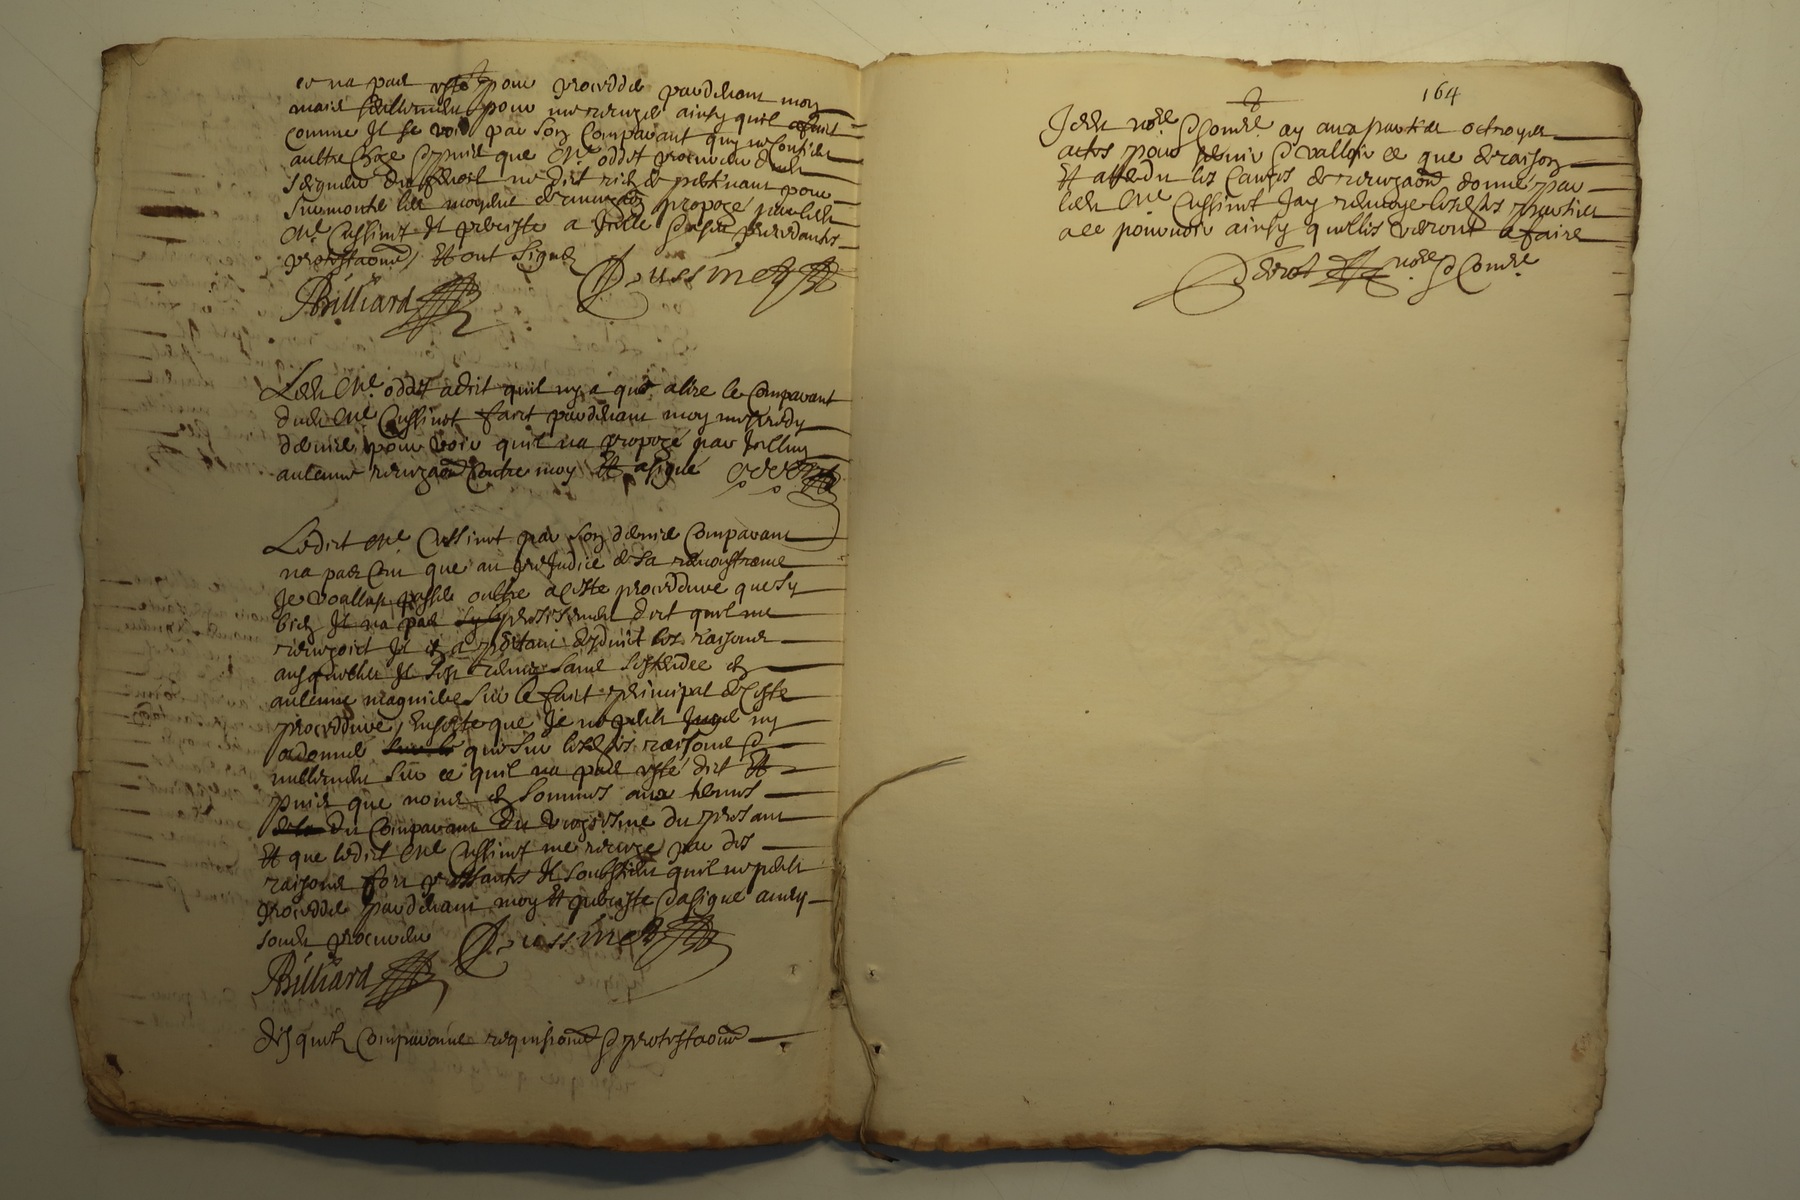 ce na pas esté pour procedder pardevant moy
mais seullement pour me recuzer ainsy quil a fait
comme Il se voit par son Comparant quy ne Contient
aultre choze et puis que Me oddet procureur dud
seigneur du ne dict rien de pertinant pour
surmonter les moyens de recuzaon propozé par led
Me Cussinet Il perciste a Icelle et a ses precedantes
protestaons, Et ont signés
Billiard Cussinet
Led Me oddet a dict quil ny a que a lire le Comparant
dud Me Cussinet faict pardevant moy mescredy
dernier pour voir quil na propozé par Icelluy
aulcune recuzaon contre moy Et a signé oddet
Ledict Me Cussinet par son dernier Comparant
na pas creu que au preJudice de sa remonstrance
Je voullus passer oultre a ceste proceddure que sy
bien Il na pas expressement dict quil me
recuzoict Il en a pourtant desduict les raisons
ausquelles Il sest renuz sans sestendre en
aulcune magniere sur le faict principal de ceste
proceddure, Ensorte que Je ne peux Juger ny
ordonner que sur lesdes raisons et
nullement sur ce quil na pas esté dict Et
puis que nous en sommes aux termes
du Comparant du vingtiesme du presant
Et que ledict Me Cussinet me recuze par des
raisons fort pressantes Il soubstient quil ne peult
procedder pardevant moy Et perciste et a signé avec
sond procureur Cussinet
Billiard
Desquels Comparans requisions et protestaons
164
Je dit nore et Comre ay aux parties octroyé
actes pour servir et valloir ce que de raison
Et attendu les Cauzes de recuzaon donné par
led Me Cussinet Jay renvoyé lesdes parties
a ce pourvoir ainsy quelles verront a faire
nore et Comre